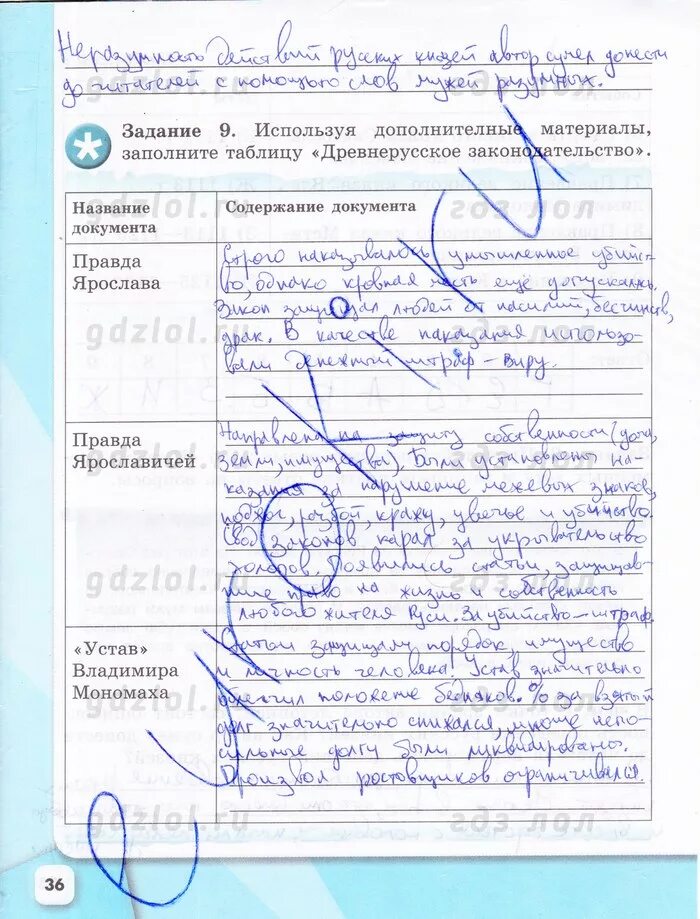 Неразумность действий русских князей автор сумел донести
до читателей с помощью слов мужей разумных.
Задание 9. Используя дополнителные материалы,
заполните таблицу «Древнерусское законодательство».
Название
документа
Содержание документа
Правда
Ярослава
Строго наказывалось умышленное убийст-
во, однако кровная месть ещё допускалась.
Закон защищал людей от насилий, бесчинств,
драк. В качестве наказания использо-
вали денежный штраф – виру.
Правда
Ярославичей
Направлена на защиту собственности (дома,
земли, имущества). Были установлены на-
казания за нарушение межевых знаков,
поджог, разбой, кражу, увечье и убийство.
Свод законов карал за укрывательство
холопов. Появились статьи, защищав-
шие право на жизнь и собственность
любого жителя Руси. За убийство – штраф.
«Устав»
Владимира
Мономаха
Статьи защищали порядок, имущество
и личность человека. Устав значительно
облегчил положение бедняков. % за взятый
долг значительно снижался, многие непо-
сильные долги были ликвидированы.
Произвол ростовщиков ограничивался.
gdzlol.ru
гдз лол
36